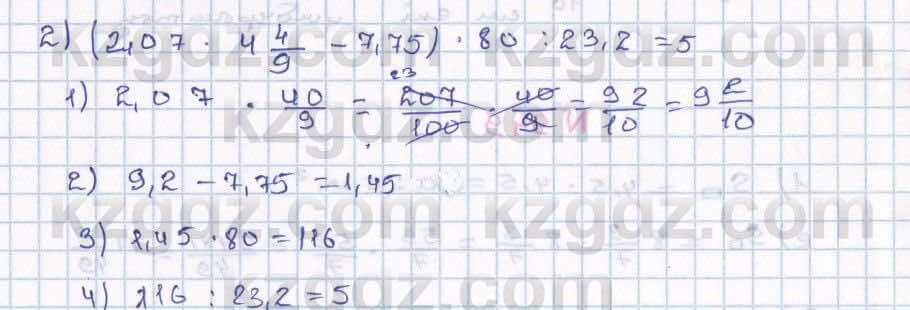 2) (2,07 · 4 4/9 - 7,75) · 80 : 23,2 = 5
1) 2,07 · 40/9 = 23 207/100 · 40/9 = 92/10 = 9 2/10
2) 9,2 - 7,75 = 1,45
3) 1,45 · 80 = 116
4) 116 : 23,2 = 5
kzgdz.com